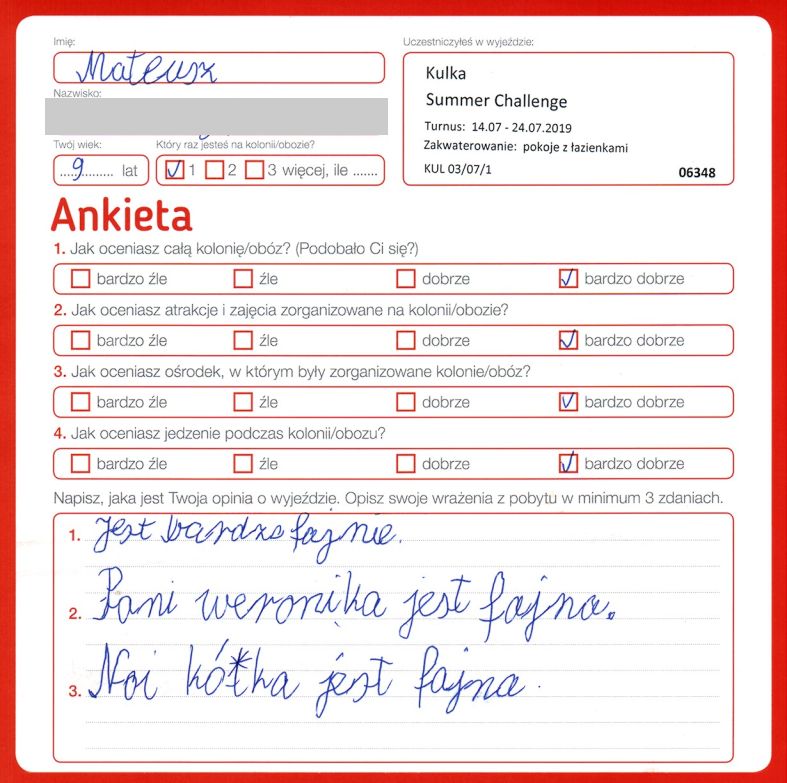 Imię:
Mateusz
Uczestniczyłeś w wyjeździe:
Kulka
Summer Challenge
Turnus: 14.07 - 24.07.2019
Zakwaterowanie: pokoje z łazienkami
KUL 03/07/1
06348
Nazwisko:
Twój wiek:
9 lat
Który raz jesteś na kolonii/obozie?
1 2 3 więcej, ile .......
Ankieta
1. Jak oceniasz całą kolonię/obóz? (Podobało Ci się?)
bardzo źle źle dobrze bardzo dobrze
2. Jak oceniasz atrakcje i zajęcia zorganizowane na kolonii/obozie?
bardzo źle źle dobrze bardzo dobrze
3. Jak oceniasz ośrodek, w którym były zorganizowane kolonie/obóz?
bardzo źle źle dobrze bardzo dobrze
4. Jak oceniasz jedzenie podczas kolonii/obozu?
bardzo źle źle dobrze bardzo dobrze
Napisz, jaka jest Twoja opinia o wyjeździe. Opisz swoje wrażenia z pobytu w minimum 3 zdaniach.
1. Jest bardzo fajnie.
2. Pani weronika jest fajna.
3. Noi kółka jest fajna.